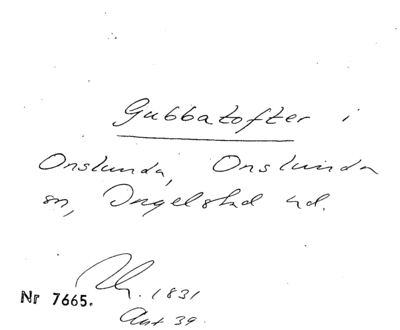 Gubbatofter i
Onslunda, Onslunda
sn, Ingelstad hd.
1831
Nr 7665.
39.